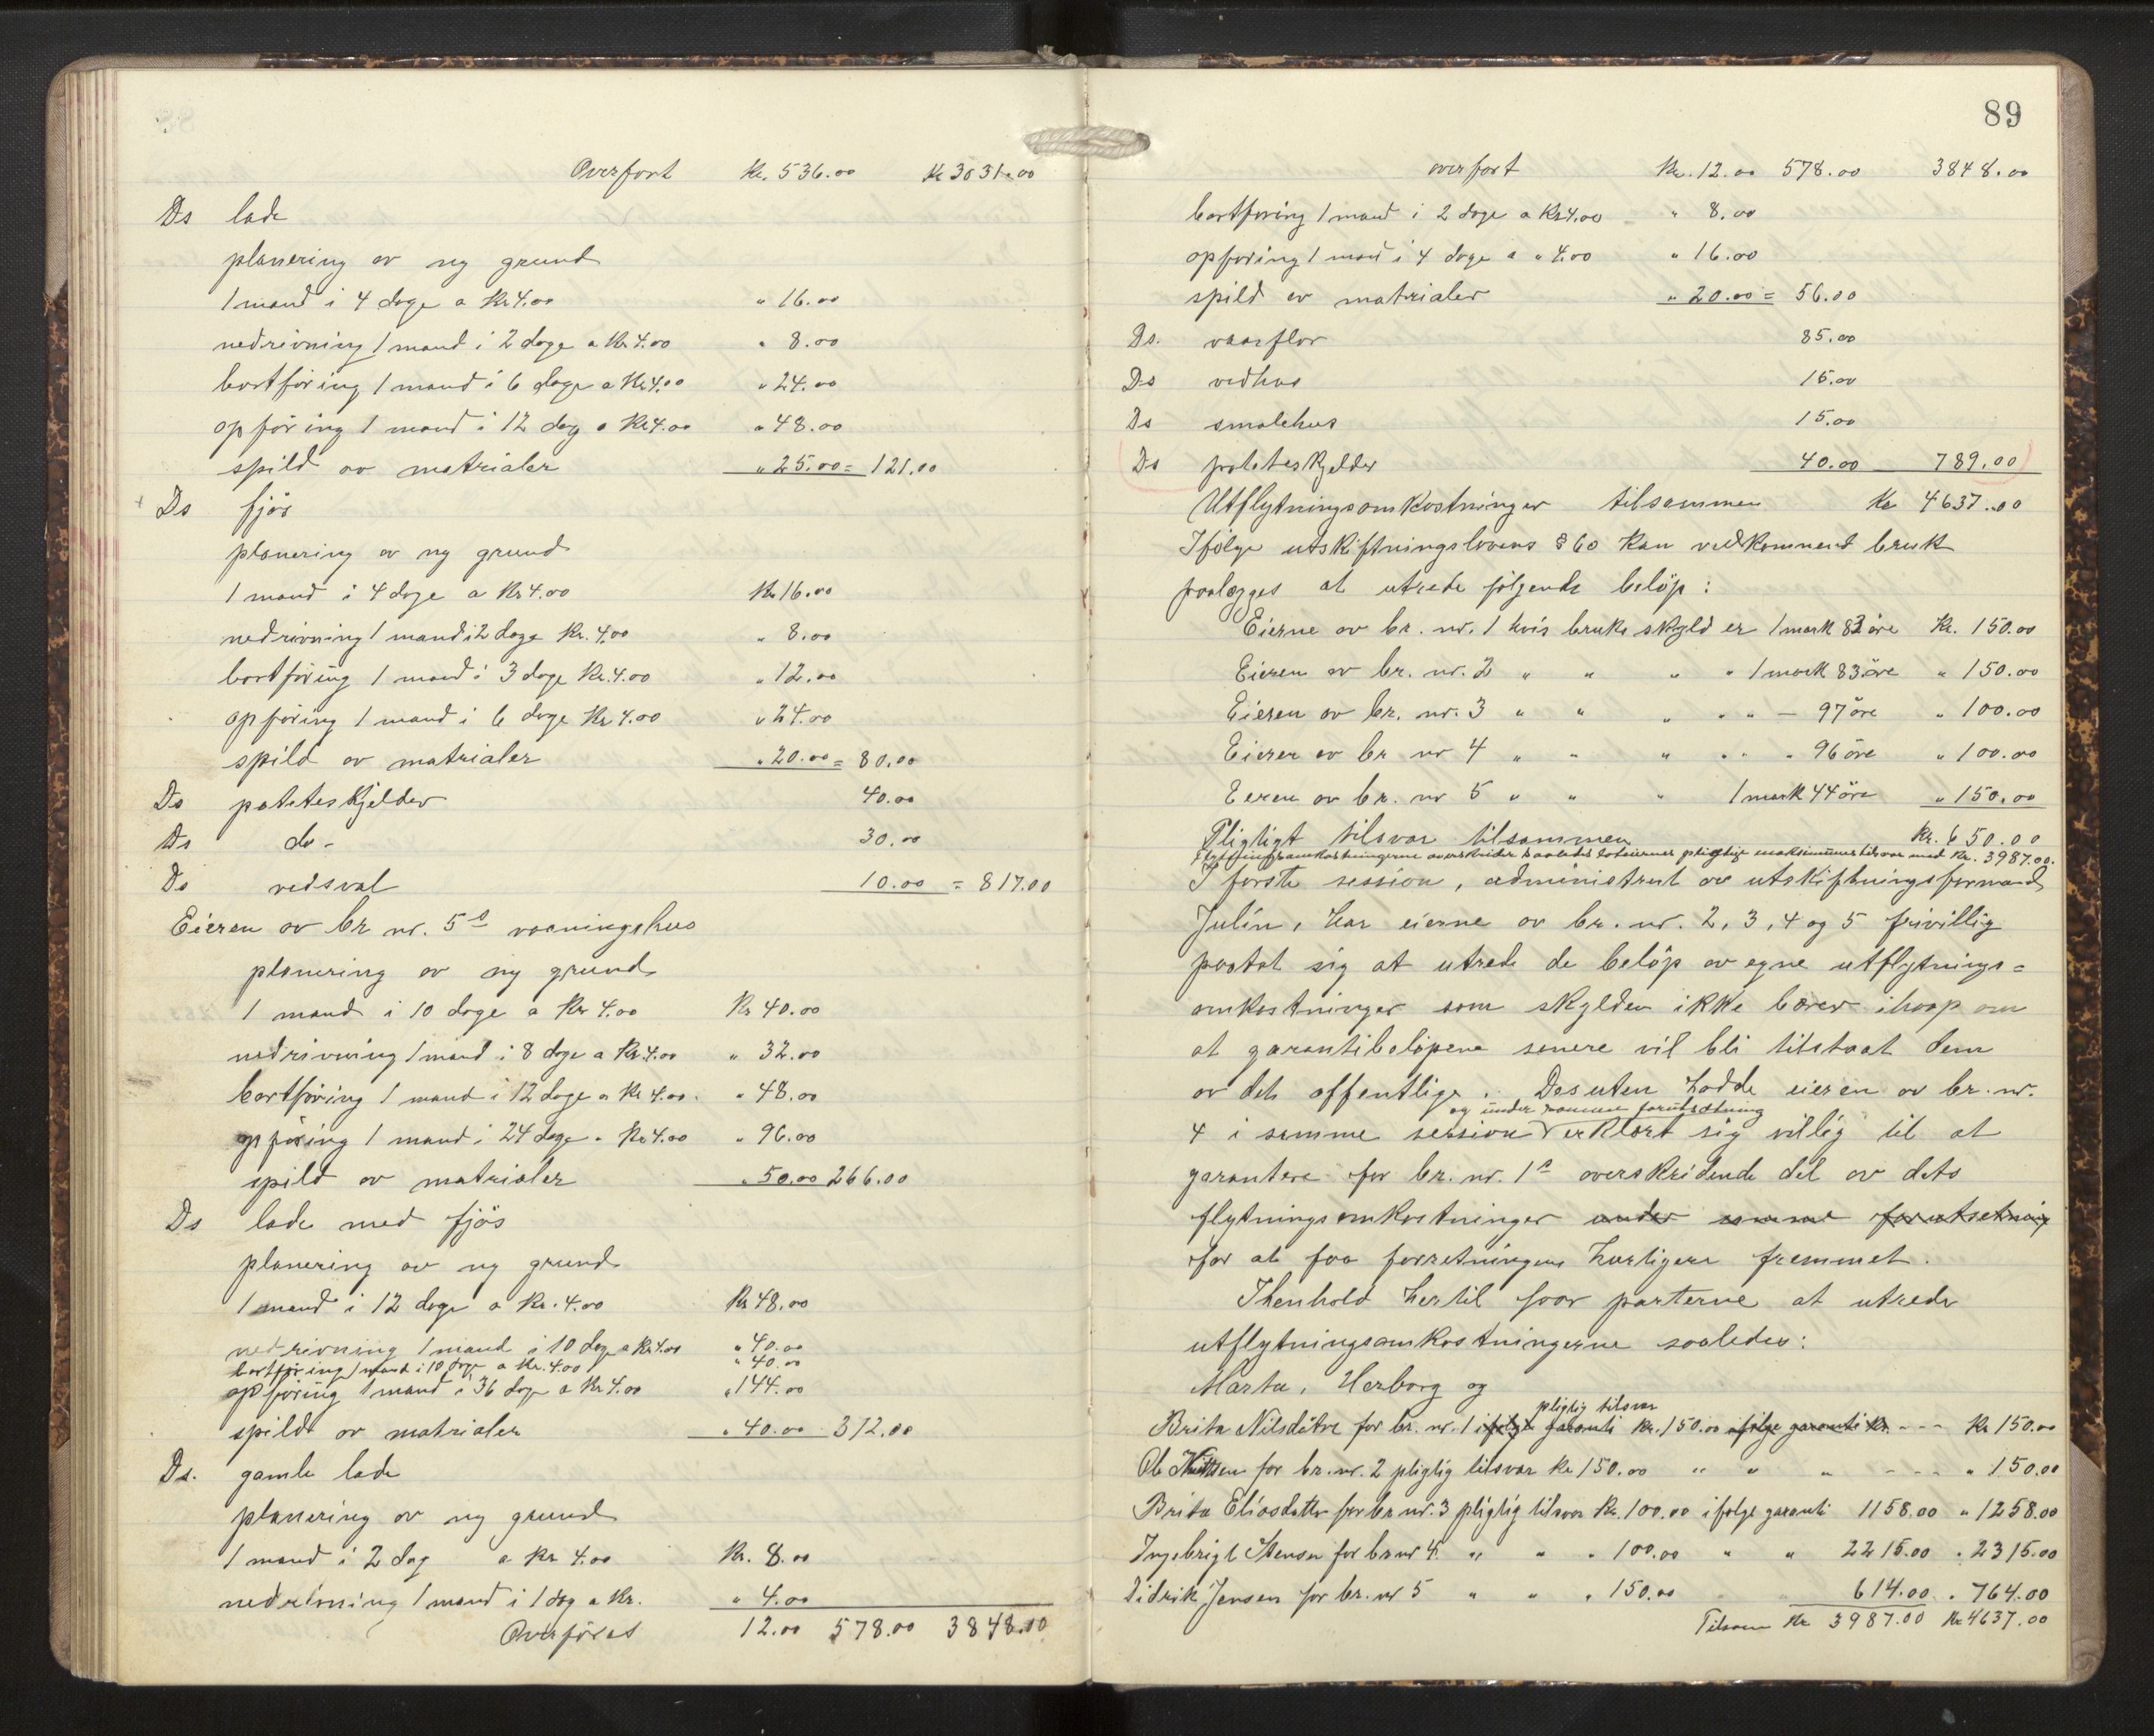 Overført Kr. 536.00 Kr 3031.00
Ds lade
planering av ny grund
1 mand i 4 dage a Kr 4.00 " 16.00
nedrivning 1 mand i 2 dage a Kr. 4.00 " 8.00
bortföring 1 mand i 6 dage a Kr 4.00 " 24.00
opföring 1 mand i 12 dag a Kr 4.00 " 48.00
spild av matrialer " 25.00 = 121.00
Ds fjös
planering av ny grund
1 mand i 4 dage a Kr 4.00 Kr 16.00
nedrivning 1 mand i 2 dage Kr. 4.00 " 8.00
bortföring 1 mand i 3 dage Kr. 4.00 " 12.00
opföring 1 mand i 6 dage Kr 4.00 " 24.00
spild av matrialer " 20.00 = 80.00
Ds poteteskjelder 40.00
Ds do - 30.00
Ds vedsval 10.00 = 817.00
Eieren av br nr. 5s vaaningshus
planering av ny grund
1 mand i 10 dage a Kr 4.00 Kr 40.00
nedrivning 1 mand i 8 dage a Kr. 4.00 " 32.00
bortföring 1 mand i 12 dage a Kr 4.00. " 48.00
opföring 1 mand i 24 dage " Kr 4.00 " 96.00
spild av matrialer " 50.00 266.00
Ds lade med fjös
planering av ny grund
1 mand i 12 dage a Kr. 4.00 Kr 48.00
nedrivning 1 mand i 10 dag a Kr 4.00 " 40.00
bortföring 1 mand i 10 dage a Kr. 4.00 " 40.00
opföring 1 mand i 36 dage a Kr 4.00 " 144.00
spild av matrialer " 40.00 312.00
Ds. gamle lade
planering av ny grund
1 mand i 2 dag a Kr 4.00 Kr. 8.00
nedrivning 1 mand i 1 dag a Kr. " 4.00
Overföres 12.00 578.00 3848.00
89
overfört Kr. 12.00 578.00 3848.00
bortföring 1 mand i 2 dage a Kr 4.00 " 8.00
opföring 1 mand i 4 dage a " 4.00 " 16.00
spild av matrialer " 20.00 = 56.00
Ds. vaarflor 85.00
Ds vedhus 15.00
Ds smalehus 15.00
Ds poteteskjelder 40.00 789.00
Utflytningsomkostninger tilsammen Kr 4637.00
Ifölge utskiftningslovens § 60 kan vedkommend bruk
paalægges at utrede fölgende belöp :
Eierne av br. nr. 1 hvis bruks skyld er 1 mark 83 öre Kr. 150.00
Eieren av br. nr. 2 " " " " 1 mark 83 öre " 150.00
Eieren av br. nr. 3 " " " " " - 97 öre " 100.00
Eieren av br nr 4 " " " " " " 96 öre " 100.00
Eieren av br. nr 5 " " " 1 mark 44 öre " 150.00
Pligtigt tilsvar tilsammen Kr. 650.00
Flytningsomkostningerne overskrider saaledes loteiernes pligtige maksimumstilsvar med Kr. 3987.00.
I förste session, administrert av utskiftningsformand
Julin, har eierne av br. nr. 2, 3, 4 og 5 frivillig
paatat sig at utrede de belöp av egne utflytnings=
omkostninger som skylden ikke bærer ihaap om
at garantibelöpene senere vil bli tilstaat dem
av det offentlige. Desuten hadde eieren av br. nr.
og under samme forutsætning
4 i samme session erklært sig villig til at
garantere for br. nr. 1s overskridende del av dets
flytningsomkostninger under samme forutsetning
for at faa forretningen hurtigere fremmet.
Ihenhold hertil faar parterne at utrede
utflytningsomkostningerne saaledes :
Marta, Herborg og
pligtig tilsvar
Brita Nilsdötre for br. nr. 1 ifölge garanti Kr. 150.00 ifölge garanti Kr. - - - Kr 150.00
Ole for br. nr. 2 pligtig tilsvar Kr 150.00 " " " - - - " 150.00
Brita Eliasdatter for br nr. 3 pligtig tilsvar Kr. 100.00 ifölge garanti 1158.00 " 1258.00
Ingebrigt for br nr 4. " " " 100.00 " " 2215.00 " 2315.00
Didrik Jensen for br. nr 5 " " " 150.00 614.00 " 764.00
Tilsam Kr 3987.00 Kr 4637.00